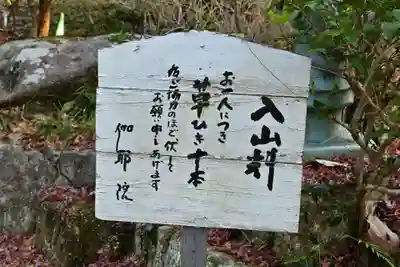 入山料
お一人につき
草ひき十本
御協力のほど伏して
お願い申しあげます
伽耶院